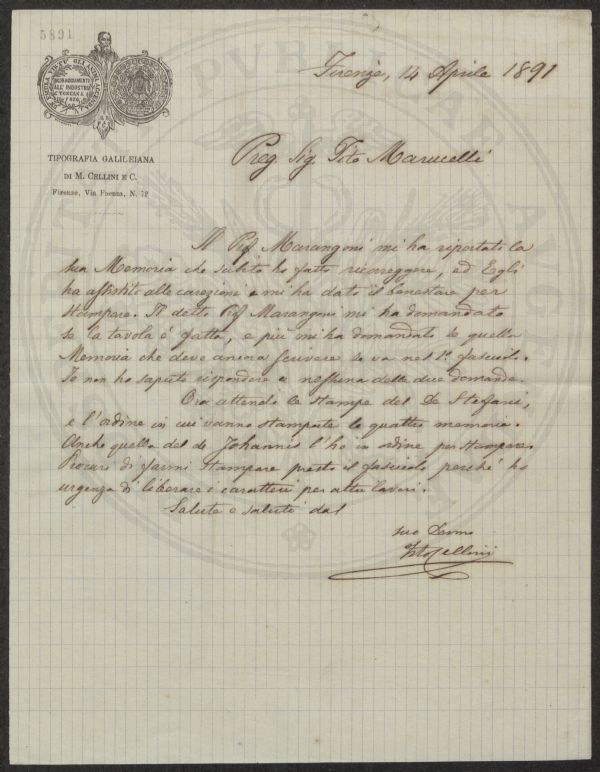 5891
INCORAGGIAMENTO
ALL' INDUSTRIA
TOSCANA
TIPOGRAFIA GALILEIANA
DI M. CELLINI E C.
Firenze, Via Faenza, N. 72
Firenze, 14 Aprile 1891
Preg. Sig. Tito Marucelli
Il Prof Marangoni mi ha riportato la
sua Memoria che subito ho fatto ricoreggere, ed Egli
ha assistito alle corezioni e mi ha dato il benestare per
stampare. Il detto Prof Marangoni mi ha domandato
se la tavola è fatta, e più mi ha domandato se quella
Memoria che deve ancora scrivere se va nel 1º fascicolo.
Io non ho saputo rispondere a nessuna delle due domande.
Ora attendo le stampe del De Stefani,
e l'ordine in cui vanno stampate le quattro memorie.
Anche quella del de Johannis l'ho in ordine per stampare.
Procuri di farmi stampare presto il fascicolo perché ho
urgenza di liberare i caratteri per altri lavori.
Salute e saluti dal
suo Devmo
Tito Cellini